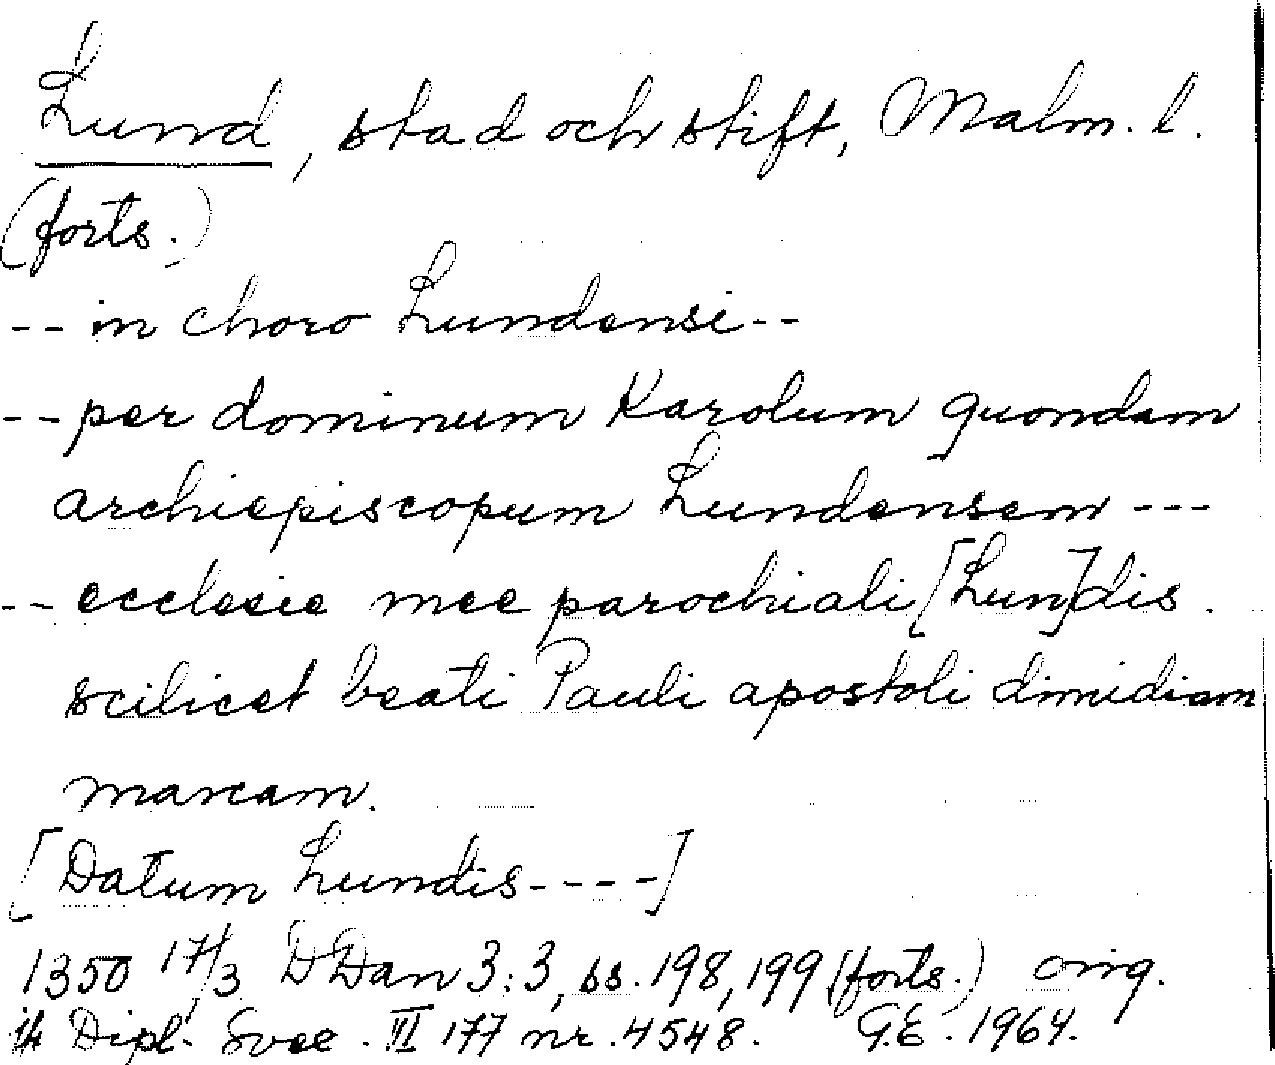 Lund, stad och stift, Malm. l.
(forts.)
-- in choro Lundensi --
-- per dominum Karolum quondam
archiepiscopum Lundensem ---
-- ecclesie mee parochiali [Lun]dis.
scilicet beati Pauli apostoli dimidiam
marcam.
[Datum Lundis ----]
1350 17/3 DDan 3:3, ss. 198, 199 (forts.) orig.
Dipl. Svec. VI 177 nr. 4548. G.E. 1964.